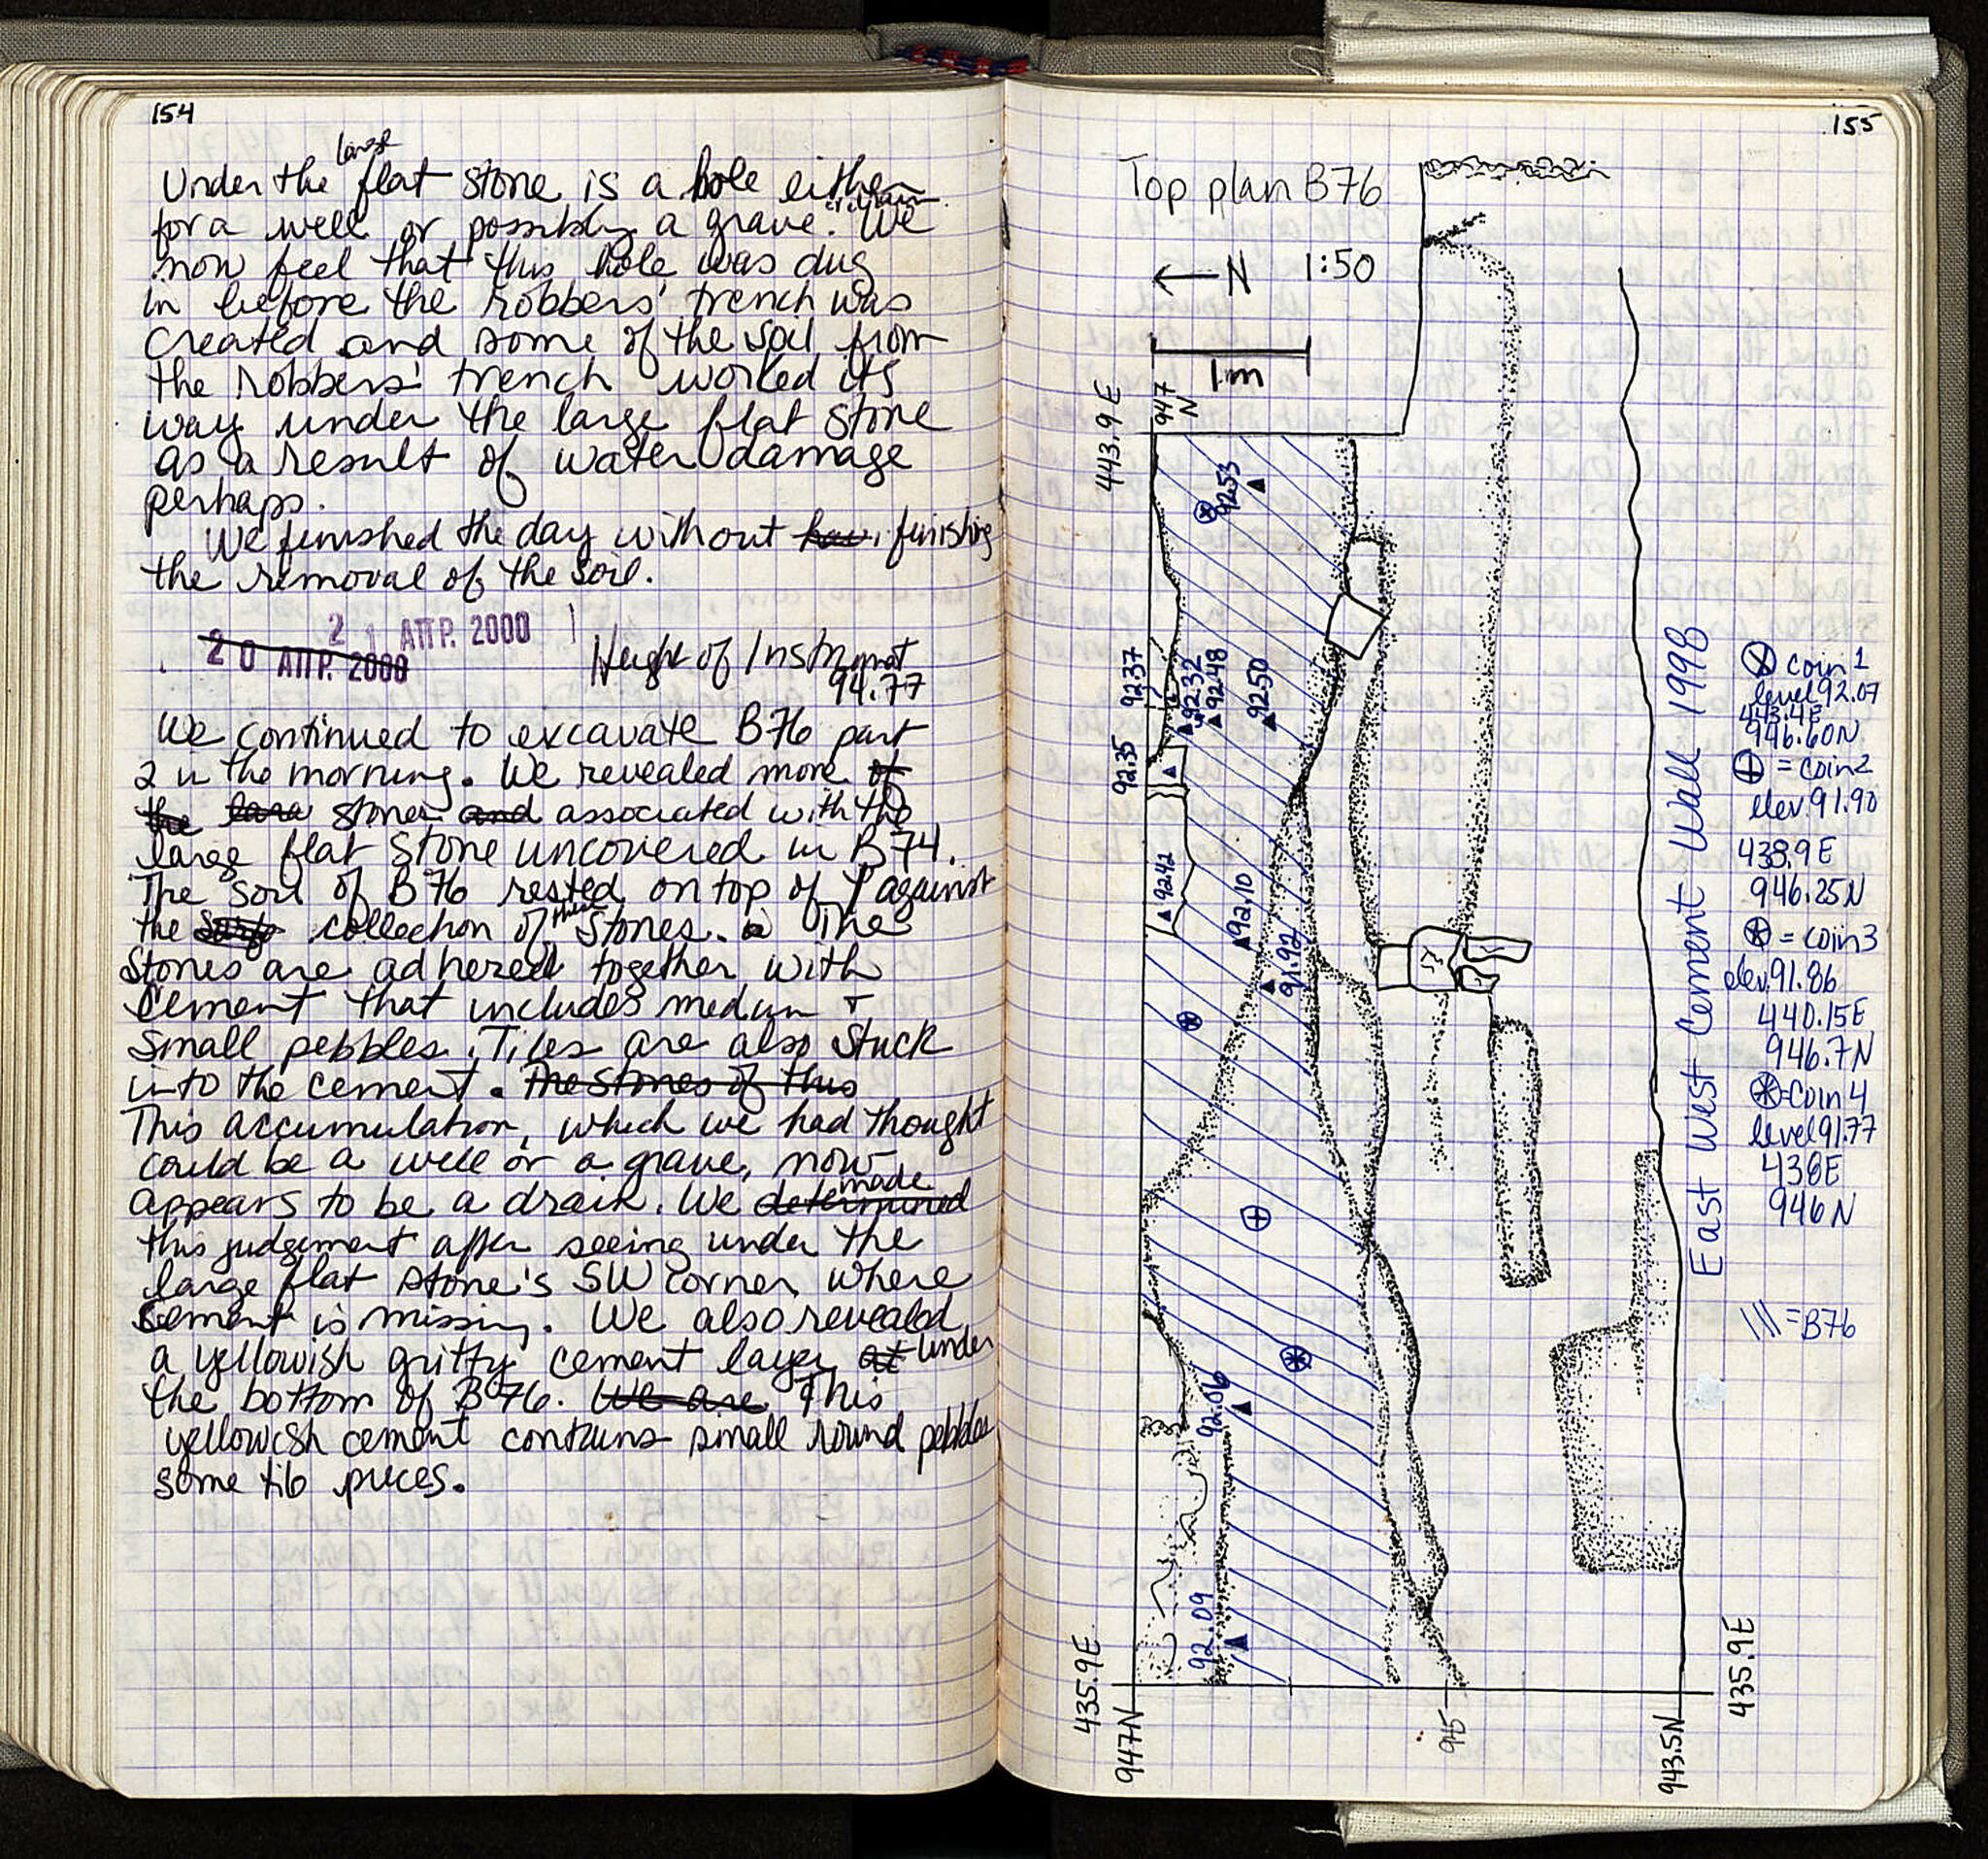 154
Under the large flat stone is a hole either
for a well or possibly a grave. We
now feel that this hole was dug
in before the robbers' trench was
created and some of the soil from
the robbers' trench worked its
way under the large flat stone
as a result of water damage
perhaps.
We finished the day without finishing
the removal of the soil.
20 ΑΠΡ. 2000
21 ΑΠΡ. 2000
Height of Instrument
94.77
We continued to excavate B76 part
2 in the morning. We revealed more of
the stones and associated with the
large flat stone uncovered in B74.
The soil of B76 rested on top of & against
the collection of these stones. The
Stones are adhered together with
cement that includes medium +
small pebbles. Tiles are also stuck
into the cement. The stones of this
This accumulation, which we had thought
could be a well or a grave, now
appears to be a drain. We determined made
this judgement after seeing under the
large flat stone's SW corner, where
cement is missing. We also revealed
a yellowish gritty cement layer at under
the bottom of B76. We are This
yellowish cement contains small round pebbles
some tile pieces.
155
Top plan B76
← N 1:50
1m
443.9 E
947
N
92.53
92.37
92.32
92.48
92.50
92.35
92.42
92.10
91.92
92.06
92.09
East West Cement Wall 1998
coin 1
level 92.07
443.4E
946.60N
= coin 2
elev. 91.90
438.9 E
946.25N
= coin 3
elev. 91.86
440.15E
946.7N
= Coin 4
level 91.77
438E
946 N
\\\ = B76
435.9E
947N
945
943.5N
435.9E